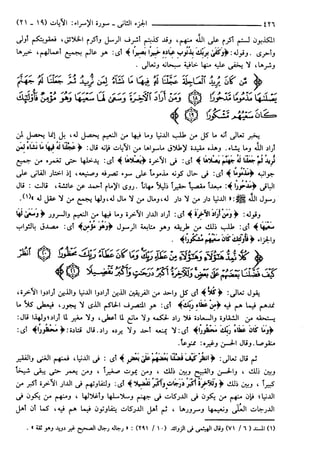 ٤٢٦ الجزء الثانى ـ سورة الإسراء: الآيات (١٩ ـ ٢١)
المكذبون لستم أكرم على الله منهم، وقد كذبتم أشرف الرسل وأكرم الخلائق، فعقوبتكم أولى
وأحرى. وقوله: ﴿وَكَفَىٰ بِرَبِّكَ بِذُنُوبِ عِبَادِهِ خَبِيرًا بَصِيرًا﴾ أى: هو عالم بجميع أعمالهم، خيرها
وشرها، لا يخفى عليه منها خافية سبحانه وتعالى.
﴿مَّن كَانَ يُرِيدُ الْعَاجِلَةَ عَجَّلْنَا لَهُ فِيهَا مَا نَشَاءُ لِمَن نُّرِيدُ ثُمَّ جَعَلْنَا لَهُ جَهَنَّمَ
يَصْلَاهَا مَذْمُومًا مَّدْحُورًا ۝ وَمَنْ أَرَادَ الْآخِرَةَ وَسَعَىٰ لَهَا سَعْيَهَا وَهُوَ مُؤْمِنٌ فَأُولَٰئِكَ
كَانَ سَعْيُهُم مَّشْكُورًا ۝﴾
يخبر تعالى أنه ما كل من طلب الدنيا وما فيها من النعيم يحصل له، بل إنما يحصل لمن
أراد الله وما يشاء. وهذه مقيدة لإطلاق ماسواها من الآيات فإنه قال: ﴿عَجَّلْنَا لَهُ فِيهَا مَا نَشَاءُ لِمَن
نُّرِيدُ ثُمَّ جَعَلْنَا لَهُ جَهَنَّمَ يَصْلَاهَا﴾ أى: فى الآخرة ﴿يَصْلَاهَا﴾ أى: يدخلها حتى تغمره من جميع
جوانبه ﴿مَذْمُومًا﴾ أى: فى حال كونه مذموماً على سوء تصرفه وصنيعه، إذ اختار الفانى على
الباقى ﴿مَّدْحُورًا﴾: مبعداً مقصياً حقيراً ذليلاً مهاناً. روى الإمام أحمد عن عائشة، قالت: قال
رسول الله ﷺ: «الدنيا دار من لا دار له، ومال من لا مال له، ولها يجمع من لا عقل له»(١).
وقوله: ﴿وَمَنْ أَرَادَ الْآخِرَةَ﴾ أى: أراد الدار الآخرة وما فيها من النعيم والسرور ﴿وَسَعَىٰ لَهَا
سَعْيَهَا﴾ أى: طلب ذلك من طريقه وهو متابعة الرسول ﴿وَهُوَ مُؤْمِنٌ﴾ أى: مصدق بالثواب
والجزاء ﴿فَأُولَٰئِكَ كَانَ سَعْيُهُم مَّشْكُورًا﴾.
﴿كُلًّا نُّمِدُّ هَٰؤُلَاءِ وَهَٰؤُلَاءِ مِنْ عَطَاءِ رَبِّكَ وَمَا كَانَ عَطَاءُ رَبِّكَ مَحْظُورًا ۝ انظُرْ كَيْفَ
فَضَّلْنَا بَعْضَهُمْ عَلَىٰ بَعْضٍ وَلَلْآخِرَةُ أَكْبَرُ دَرَجَاتٍ وَأَكْبَرُ تَفْضِيلًا ۝﴾
يقول تعالى: ﴿كُلًّا﴾ أى كل واحد من الفريقين الذين أرادوا الدنيا والذين أرادوا الآخرة،
نمدهم فيما هم فيه ﴿مِنْ عَطَاءِ رَبِّكَ﴾ أى: هو المتصرف الحاكم الذى لا يجور، فيعطى كلاً ما
يستحقه من الشقاوة والسعادة فلا راد لحكمه ولا مانع لما أعطى، ولا مغير لما أراد، ولهذا قال:
﴿وَمَا كَانَ عَطَاءُ رَبِّكَ مَحْظُورًا﴾ أى: لا يمنعه أحد ولا يرده راد. قال قتادة: ﴿مَحْظُورًا﴾ أى:
منقوصاً. وقال الحسن وغيره: ممنوعاً.
ثم قال تعالى: ﴿انظُرْ كَيْفَ فَضَّلْنَا بَعْضَهُمْ عَلَىٰ بَعْضٍ﴾ أى: فى الدنيا، فمنهم الغنى والفقير
وبين ذلك، والحسن والقبيح وبين ذلك، ومن يموت صغيراً، ومن يعمر حتى يبقى شيخاً
كبيراً، وبين ذلك ﴿وَلَلْآخِرَةُ أَكْبَرُ دَرَجَاتٍ وَأَكْبَرُ تَفْضِيلًا﴾ أى: ولتفاوتهم فى الدار الآخرة أكبر من
الدنيا؛ فإن منهم من يكون فى الدركات فى جهنم وسلاسلها وأغلالها، ومنهم من يكون فى
الدرجات العلى ونعيمها وسرورها، ثم أهل الدركات يتفاوتون فيما هم فيه، كما أن أهل
(١) المسند (٦ / ٧١) وقال الهيثمى فى الزوائد (١٠ / ٢٩١): «رجاله رجال الصحيح غير دويد وهو ثقة».